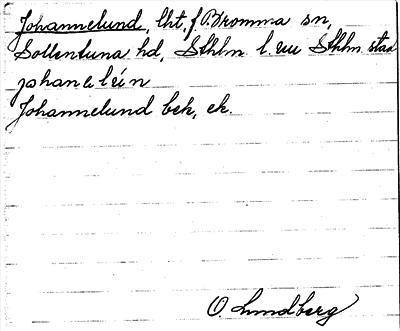 Johannelund, lht, f. Bromma sn,
Sollentuna hd, Sthlm l. nu Sthlm stad
Johannelund bek, ek.
O. Lundberg